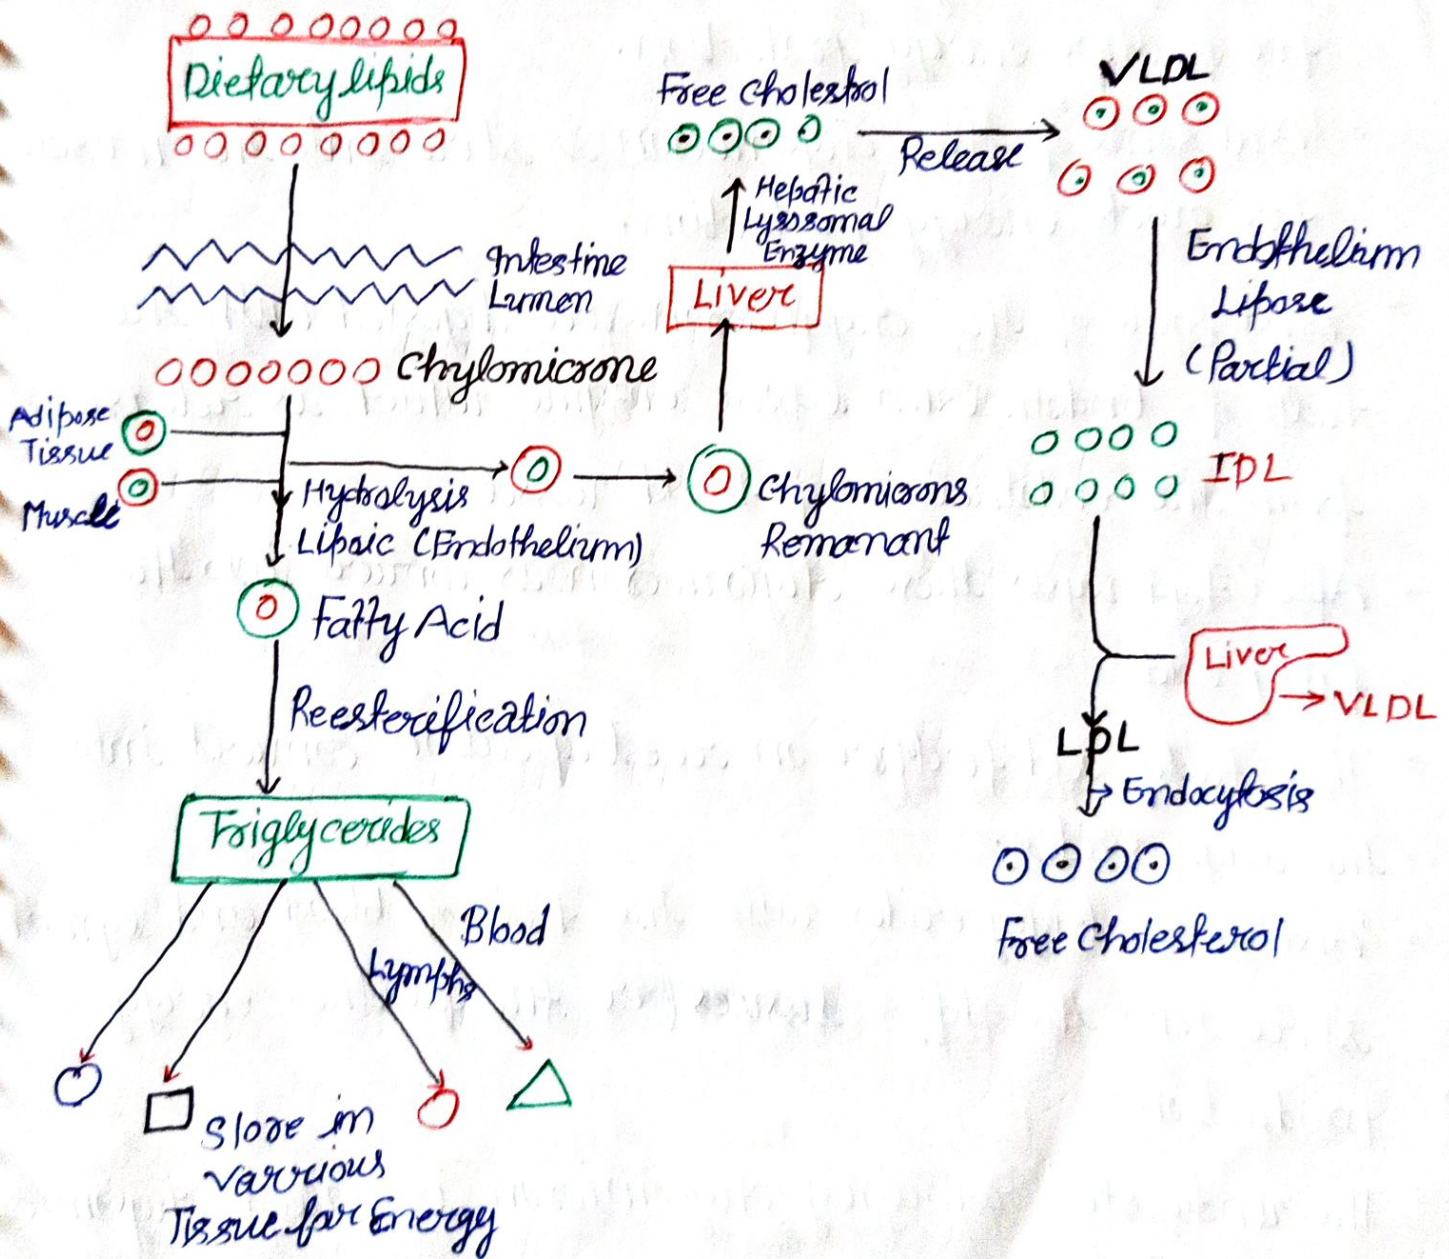 Dietary lipids
Intestine
Lumen
Chylomicrone
Adipose
Tissue
Muscle
Hydrolysis
Lipaic (Endothelium)
Fatty Acid
Reesterification
Triglycerides
Blood
Lymphs
Store in
varrious
Tissue for Energy
Chylomicrons
Remanant
Liver
Hepatic
Lysosomal
Enzyme
Free Cholestrol
Release
VLDL
Endothelium
Lipase
(Partial)
IDL
Liver
VLDL
LDL
Endocytosis
Free Cholesterol